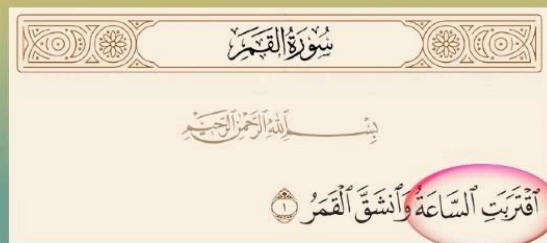 سُورَةُ القَمَرِ
بِسْمِ اللَّهِ الرَّحْمَٰنِ الرَّحِيمِ
ٱقْتَرَبَتِ ٱلسَّاعَةُ وَٱنشَقَّ ٱلْقَمَرُ ١